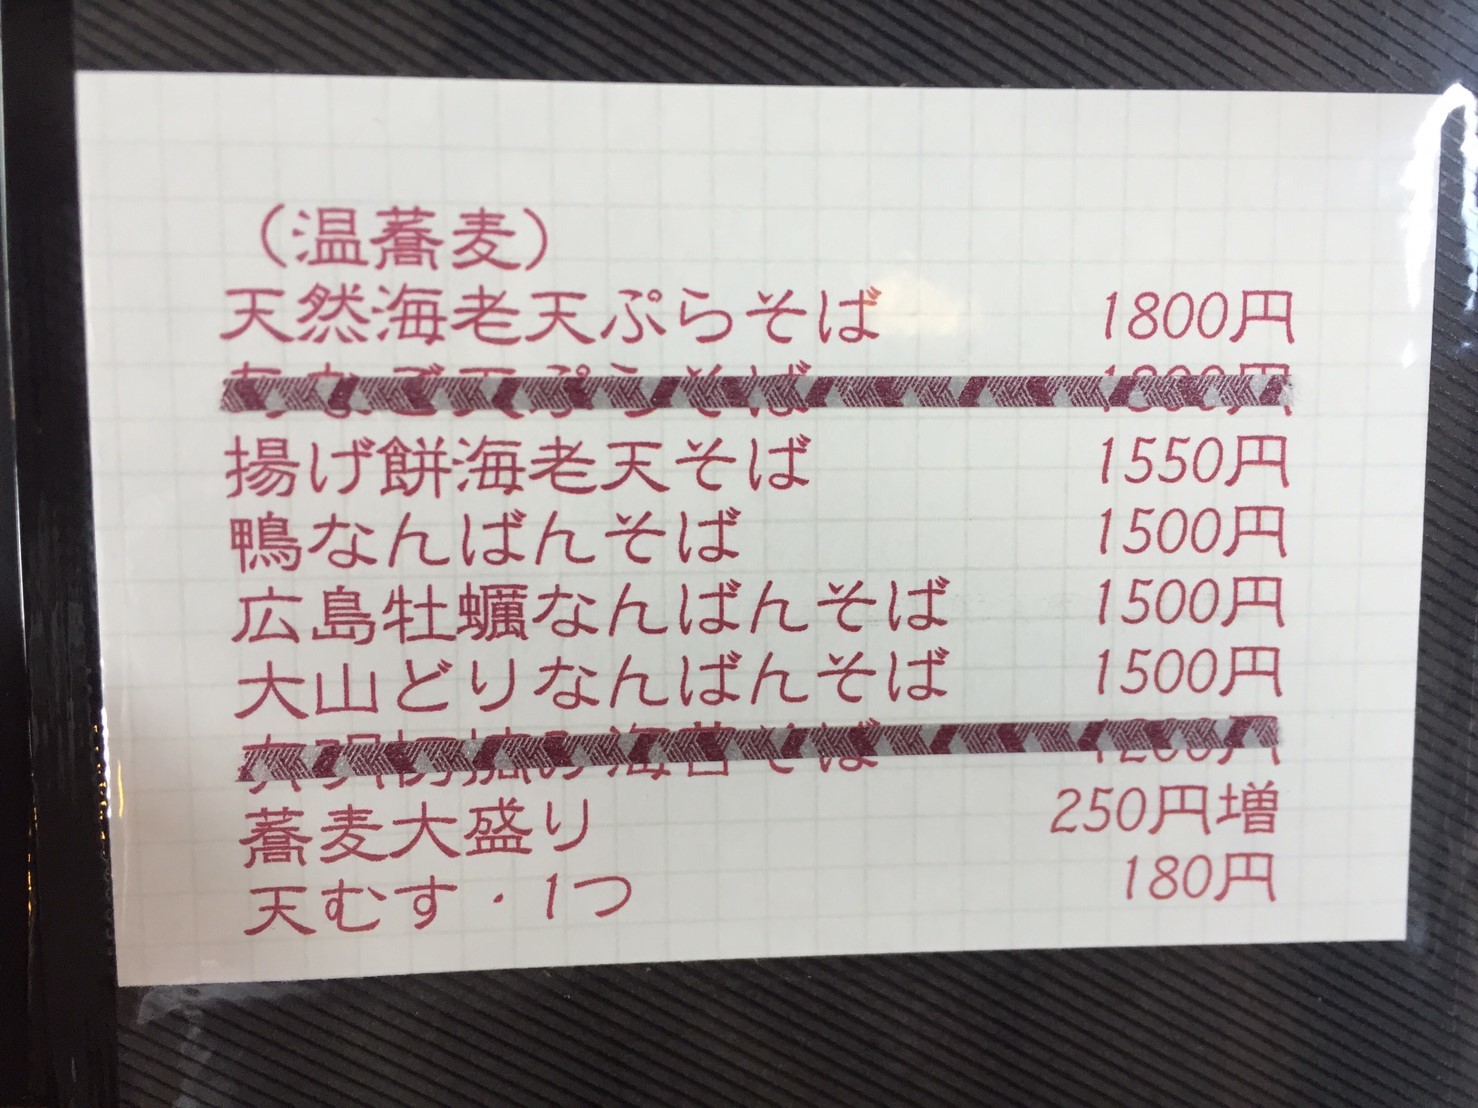 (温蕎麦)
天然海老天ぷらそば 1800円
天ぷらそば
揚げ餅海老天そば 1550円
鴨なんばんそば 1500円
広島牡蠣なんばんそば 1500円
大山どりなんばんそば 1500円
海苔そば 1200円
蕎麦大盛り 250円増
天むす・1つ 180円